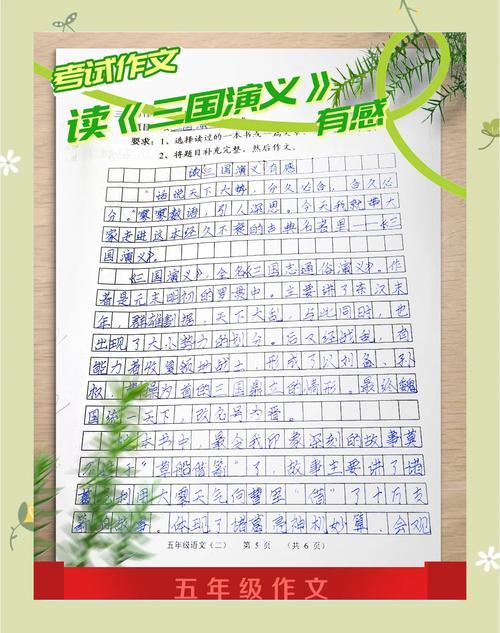 考试作文
读《三国演义》
有感
要求：1、选择读过的一本书或一篇文章
2、将题目补充完整，然后作文。
读三国演义有感
“话说天下大势，分久必合，合久必
分。”寥寥数语，引人深思。今天我就带大
家走进这本经久不衰的古典名著里——《三
国演义》。
《三国演义》，全名《三国志通俗演义》。作
者是元末明初的罗贯中。主要讲了东汉末
年，群雄割据，天下大乱，与此同时，也
出现了大小势力的划分。后又经战乱，由
能力者收复领地战士，形成了以刘备、孙
权、曹操为首的三国鼎立的情形。最终魏
国统一天下，改名号为晋。
本书中，最令我印象深刻的故事莫
于“草船借箭”了，故事主要讲了诸
利用大雾天气向曹军“借”了十万支
箭的故事。体现了诸葛亮神机妙算、会观
五年级语文（二） 第 5 页 （共 6 页）
五年级作文